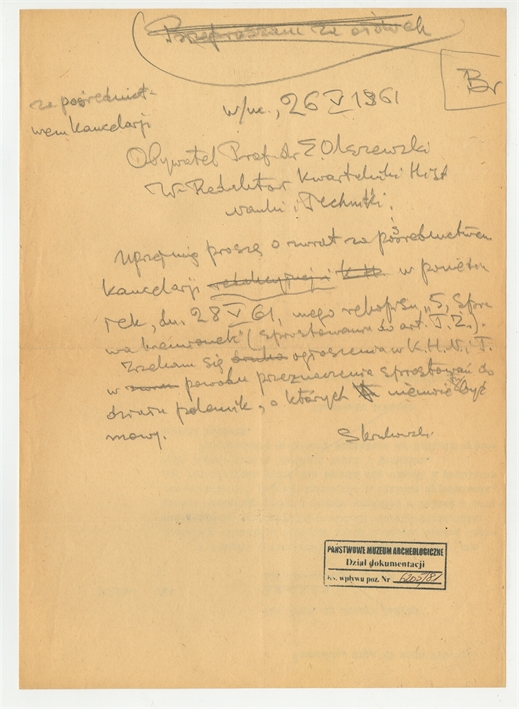 Przepraszam za ołówek
Br
za pośrednict-
wem kancelarji
w/m., 26 V 1961
Obywatel Prof. dr E. Olszewski
W. Redaktor Kwartalnika Hist
Nauki i Techniki.
Uprzejmie proszę o zwrot za pośrednictwem
kancelarji w poniedzia
łek, dn. 28 V 61, mego rękopisu „5. Spra
wa kamionek" (sprostowania do art. T. Z.).
Zrzekam się druku ogłoszenia w K.H.N. i T.
w powodu przeznaczenia sprostowań do
działu polemik, o których nie może być
mowy.
PAŃSTWOWE MUZEUM ARCHEOLOGICZNE
Dział dokumentacji
Ks. wpływu poz. Nr